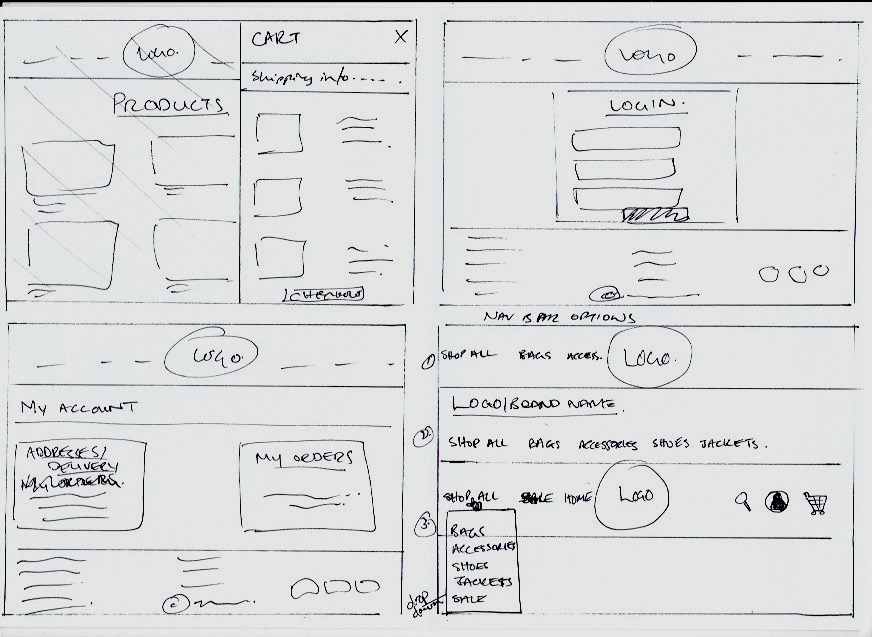 LOGO.
CART X
Shipping info.....
PRODUCTS
CHECKOUT
LOGO
LOGIN.
©
LOGO.
MY ACCOUNT
ADDRESSES/
DELIVERY
MY ORDERS
©
NAV BAR OPTIONS
1 SHOP ALL BAGS ACCESS. LOGO.
LOGO/BRAND NAME.
2. SHOP ALL BAGS ACCESSORIES SHOES JACKETS.
3. SHOP ALL SALE HOME LOGO
BAGS
ACCESSORIES
SHOES
JACKETS
SALE
drop
down